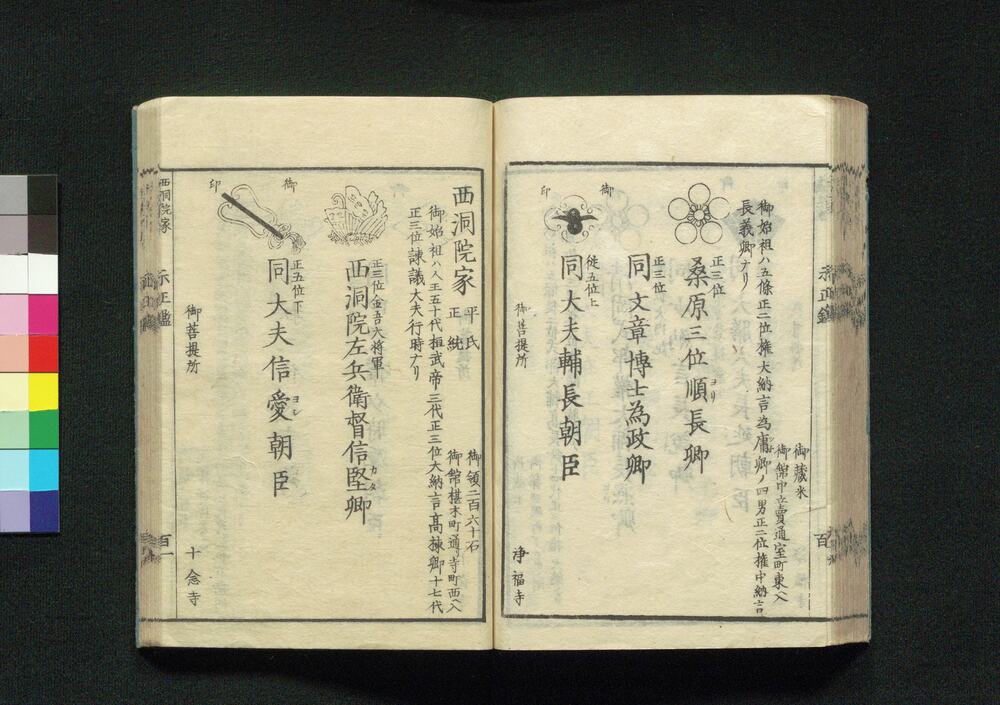 御蔵米
御館中立賣通室町東ヘ入
御始祖ハ五條正二位権大納言為庸卿ノ四男正二位権中納言
長義卿ナリ
正三位
桑原三位順長卿
ヨリ
正三位
同文章博士為政卿
御
印
従五位上
同大夫輔長朝臣
御菩提所
浄福寺
百
西洞院家
平氏
正純
御領二百六十石
御館椹木町通リ寺町西ヘ入
御始祖ハ人王五十代桓武帝三代正三位大納言高棟卿十七代
正三位諫議大夫行時ナリ
正三位金吾大将軍
西洞院左兵衛督信堅卿
カタ
御
印
正五位下
同大夫信愛朝臣
ヨシ
御菩提所
十念寺
西洞院家
百一